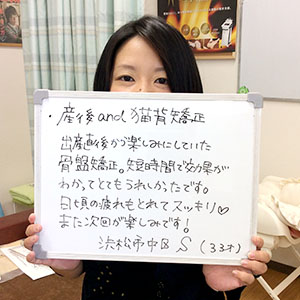 ・産後and猫背矯正
出産直後から楽しみにしていた
骨盤矯正。短時間で効果が
わかってとてもうれしかったです。
日頃の疲れもとれてスッキリ♡
また次回が楽しみです!
浜松市中区 S (33才)